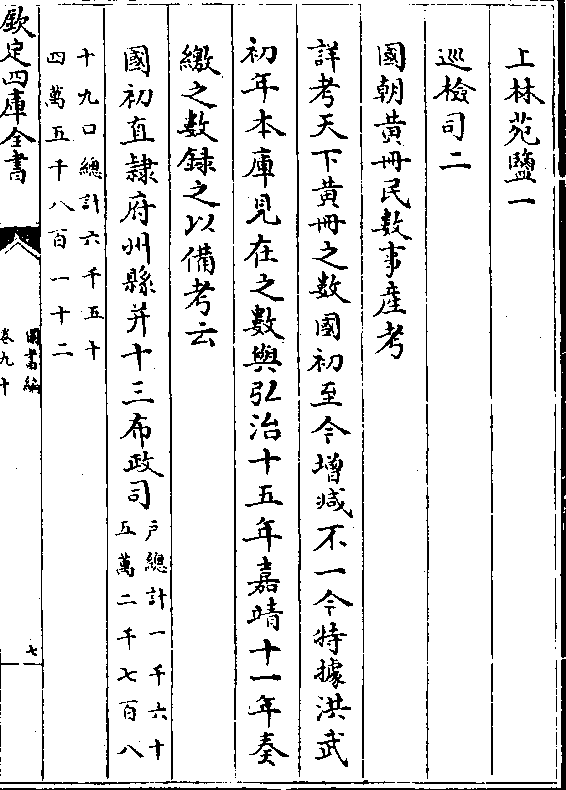 上林苑鹽一
巡檢司二
國朝黃冊民數事産考
詳考天下黃冊之數國初至今增減不一今特據洪武
初年本庫見在之數與弘治十五年嘉靖十一年奏
繳之數録之以備考云
國初直隷府州縣并十三布政司
戶總計一千六十
五萬二千七百八
十九口總計六千五十
四萬五千八百一十二
欽定四庫全書
圖書編
卷九十
七